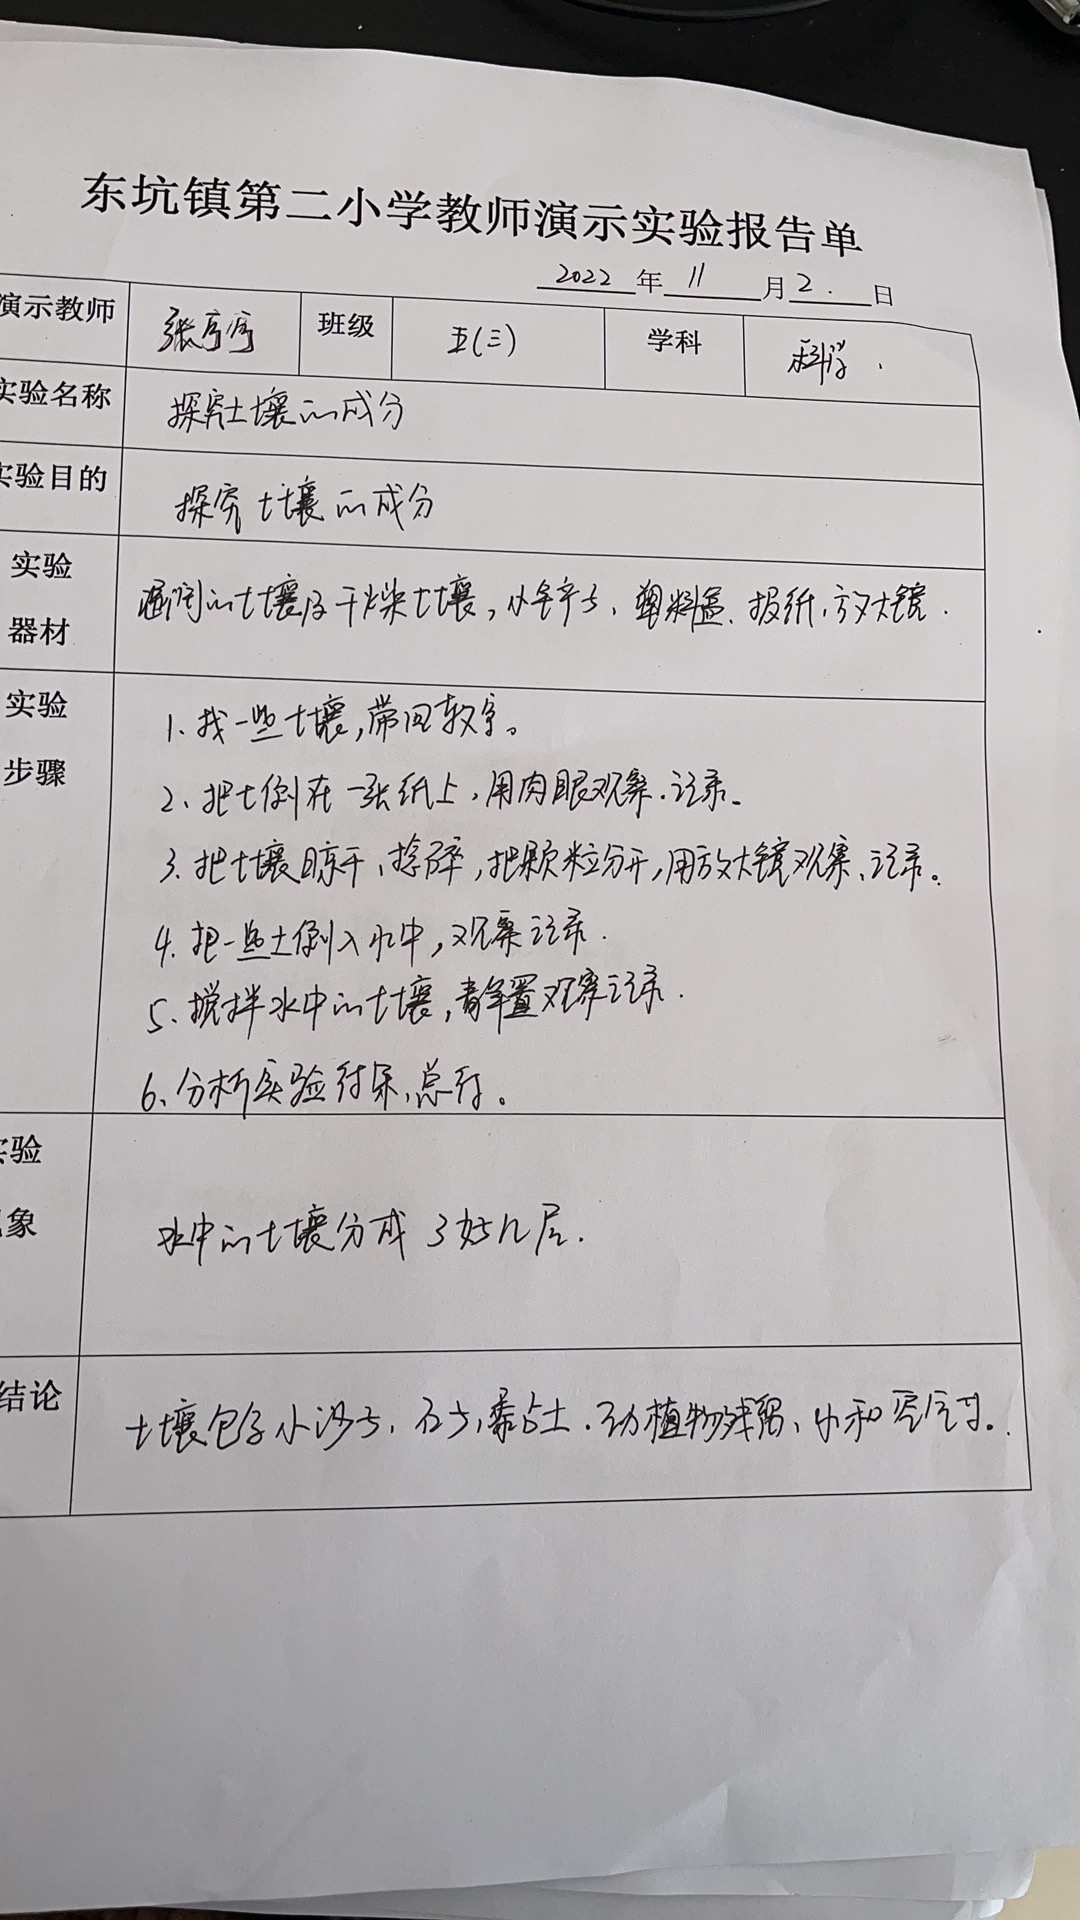 东坑镇第二小学教师演示实验报告单
2022年11月2.日
演示教师 张 班级 五(三) 学科 科学.
实验名称 探究土壤的成分
实验目的 探究土壤的成分
实验 器材 湿润的土壤及干燥土壤,小铲子、塑料盒、报纸、放大镜.
实验 步骤 1.找一些土壤,带回教室。
2、把土倒在一张纸上,用肉眼观察、记录。
3.把土壤晾干、捻碎,把颗粒分开,用放大镜观察、记录。
4.把一些土倒入水中,观察记录.
5、搅拌水中的土壤,静置观察记录.
6、分析实验结果,总结。
实验 现象 水中的土壤分成了好几层.
结论 土壤包含小沙子、石子、黏土、动植物残留、水和空气等。